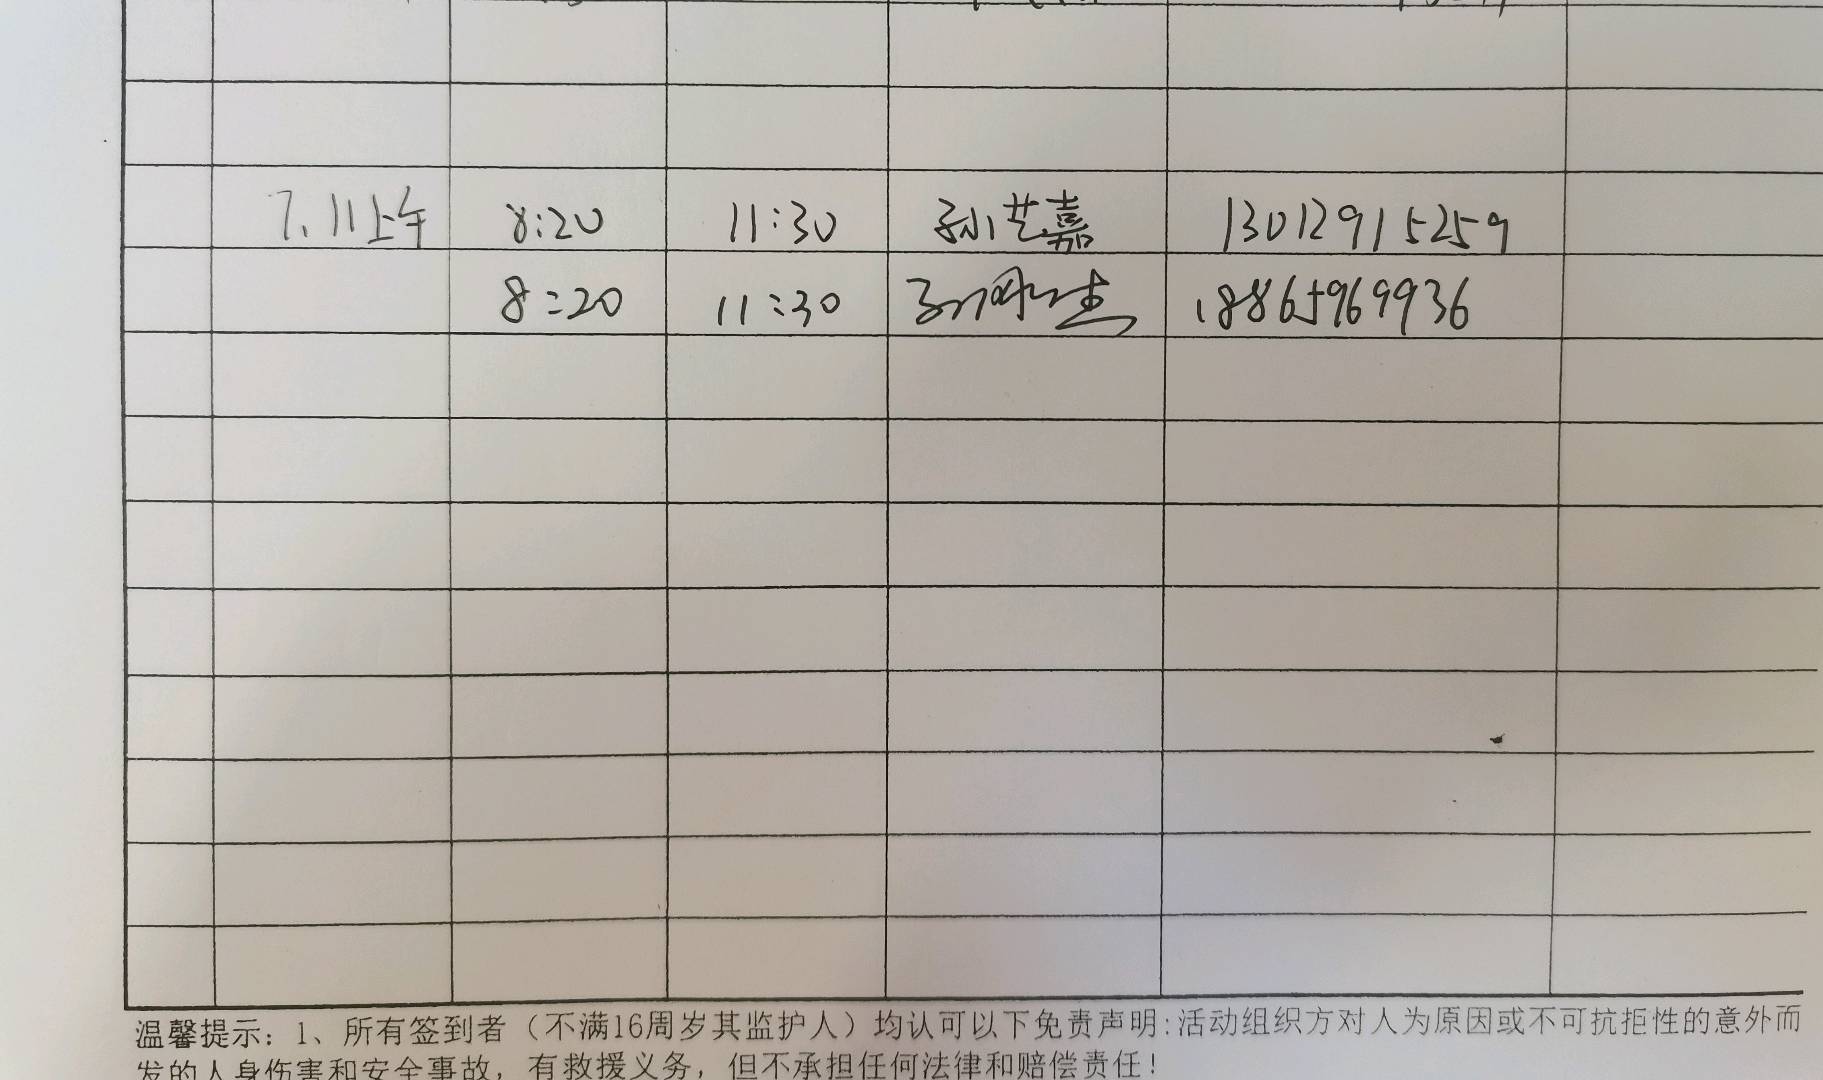 7、11上午 8:20 11:30 孙艺嘉 13012915259
8:20 11:30 18865969936
温馨提示：1、所有签到者（不满16周岁其监护人）均认可以下免责声明:活动组织方对人为原因或不可抗拒性的意外而
发的人身伤害和安全事故，有救援义务，但不承担任何法律和赔偿责任！